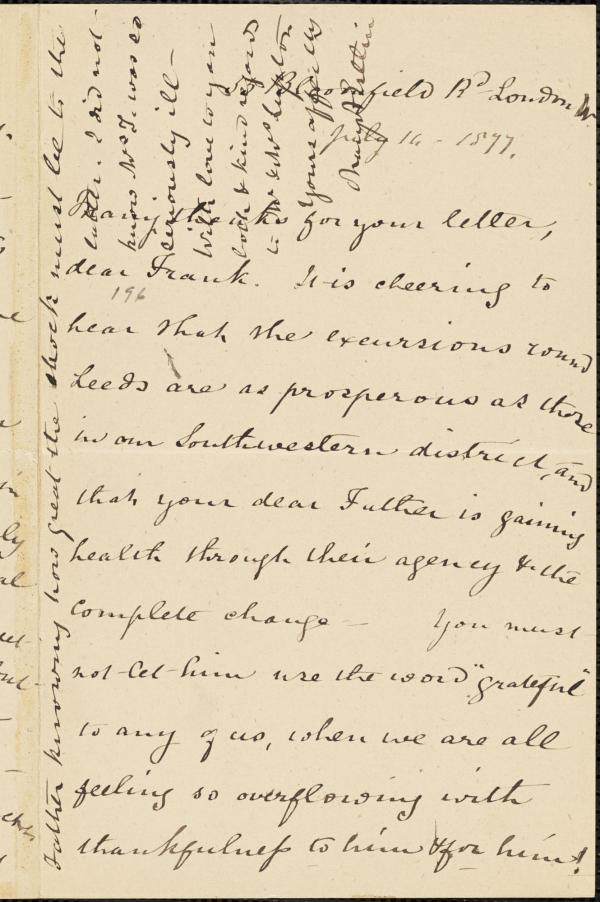 Bloomfield Rd London W.
July 16 - 1877.
Many thanks for your letter,
dear Frank. It is cheering to
196
hear that the excursions round
Leeds are as prosperous as those
in our Southwestern district, and
that your dear Father is gaining
health through their agency & the
complete change — You must
not let him use the word "grateful"
to any of us, when we are all
feeling so overflowing with
thankfulness to him & for him!
Father knowing how great the shock must be to the
latter. I did not
know Mrs T. was so
seriously ill —
With love to you
both & kind regards
to Mr & Mrs
Yours affectly
Mary Estlin